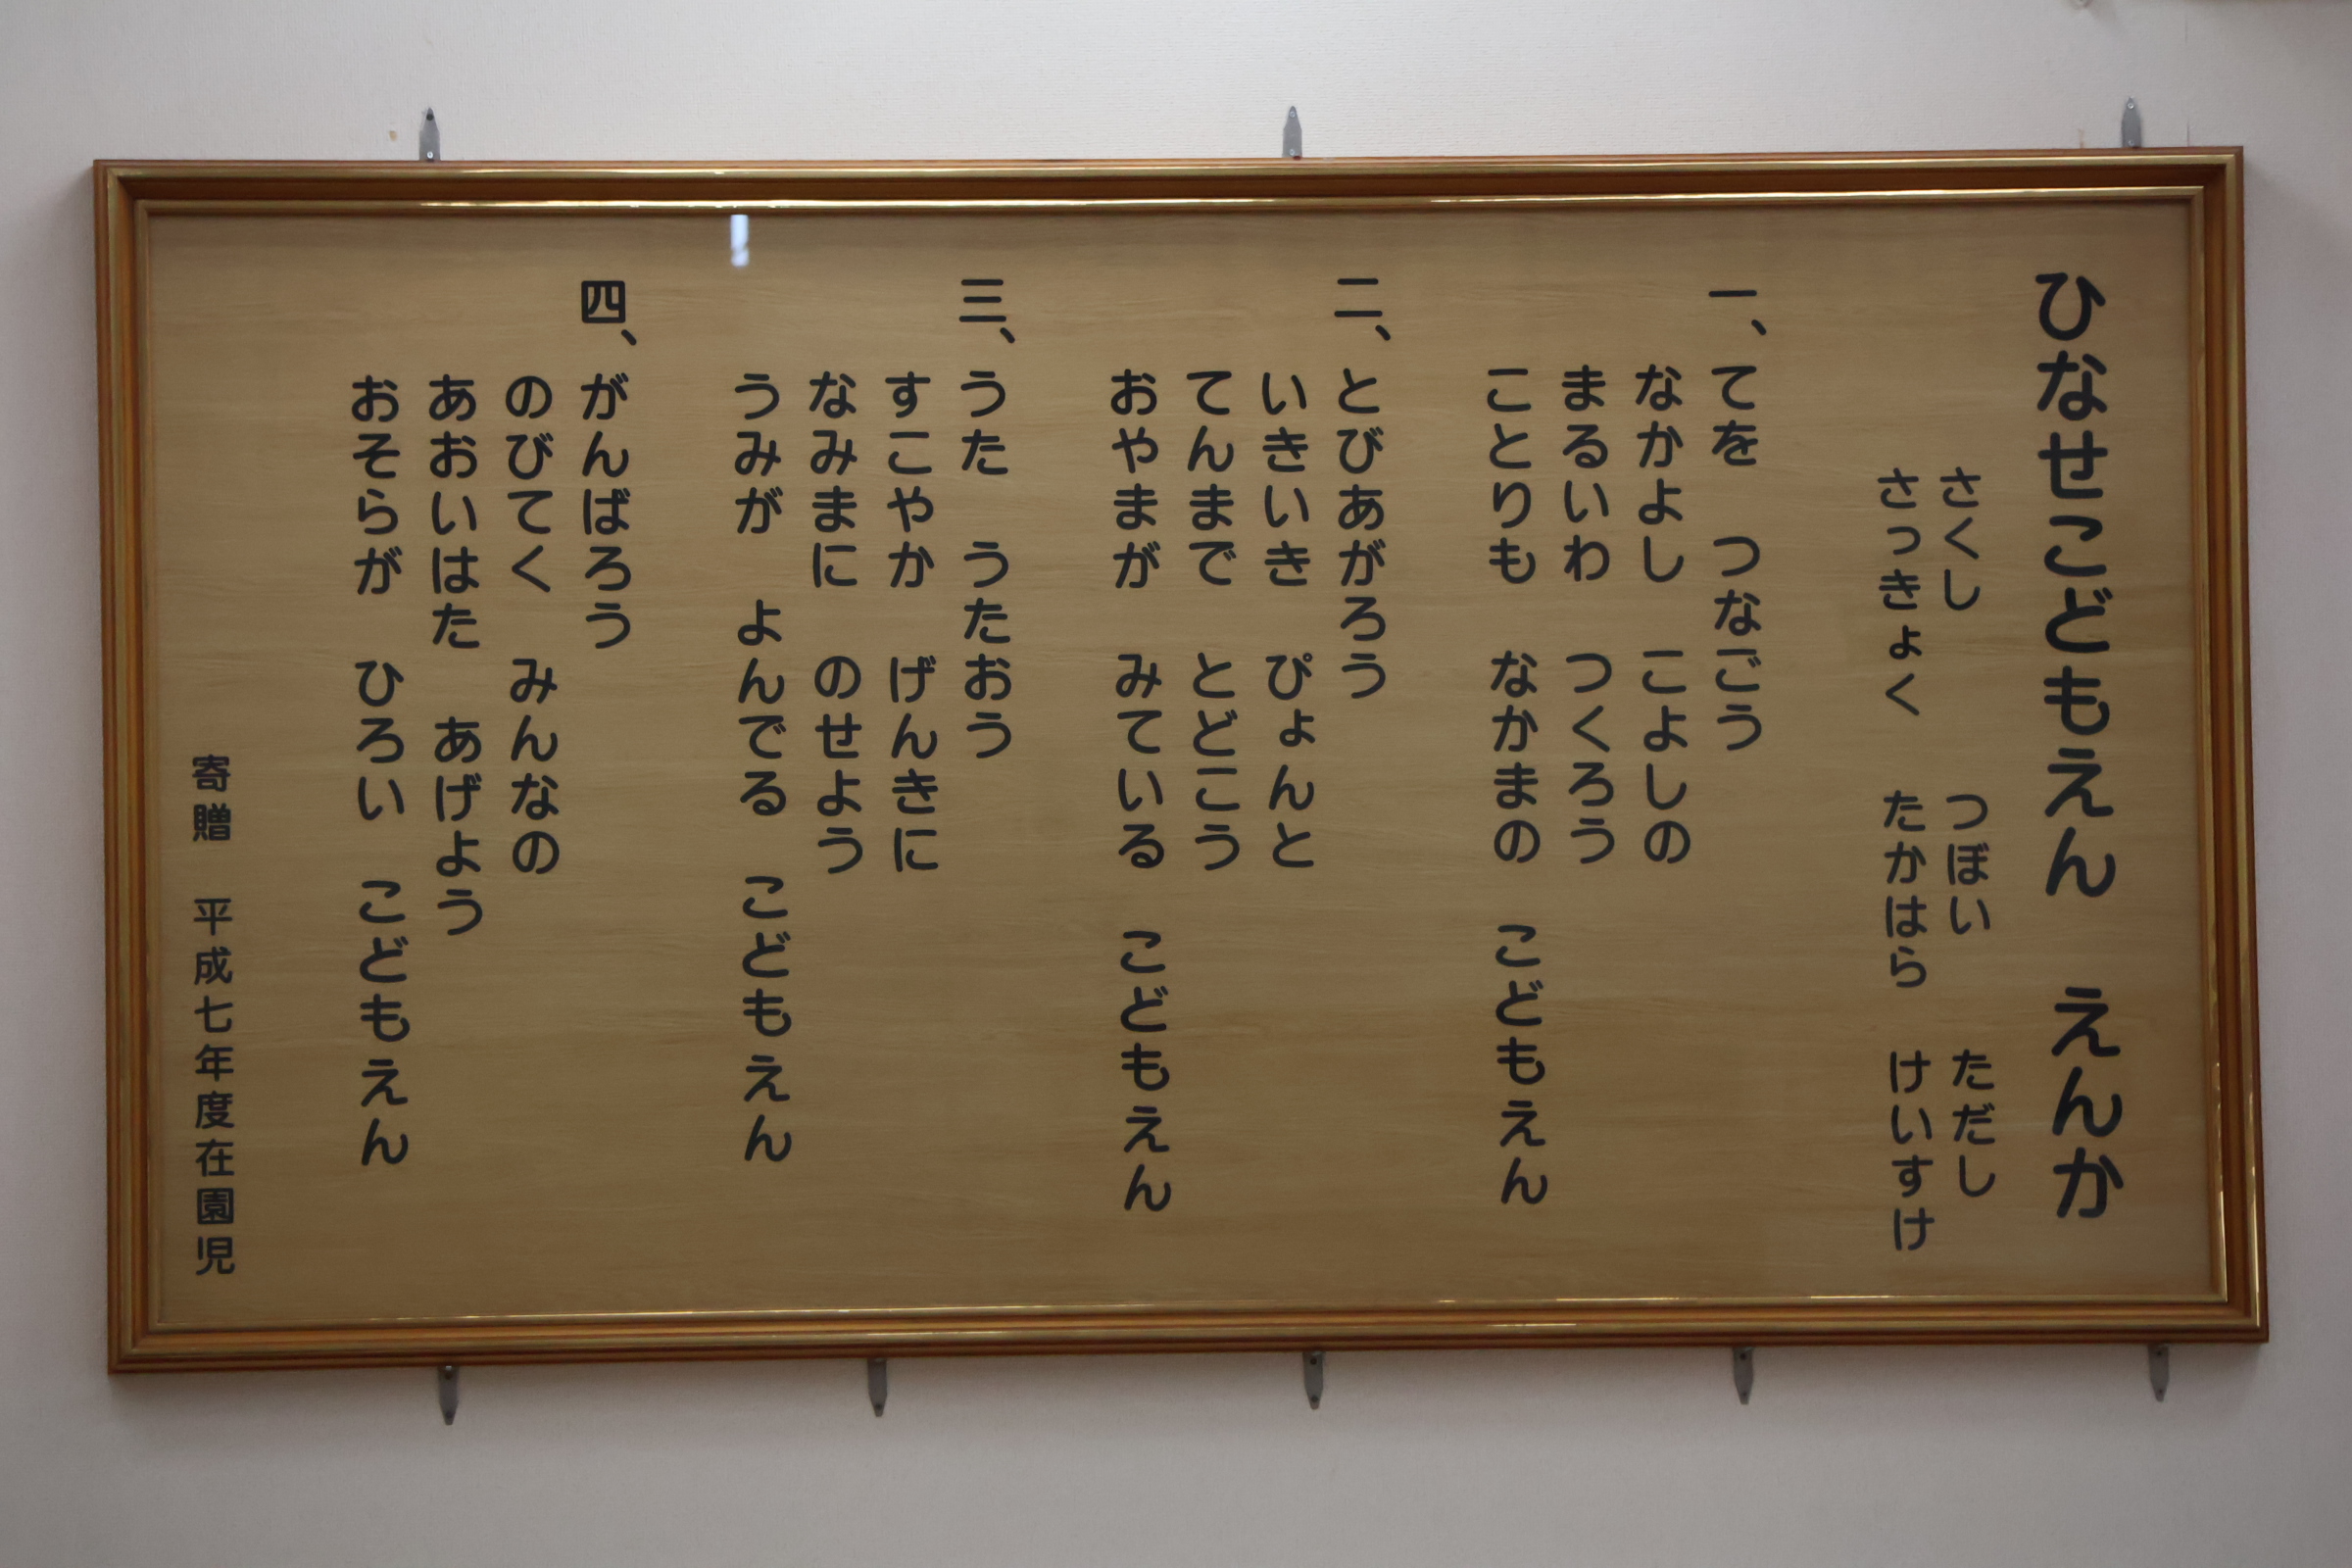 ひなせこどもえん　えんか
さくし　つぼい　ただし
さっきょく　たかはら　けいすけ
一、てを　つなごう
なかよし　こよしの
まるいわ　つくろう
ことりも　なかまの　こどもえん
二、とびあがろう
いきいき　ぴょんと
てんまで　とどこう
おやまが　みている　こどもえん
三、うた　うたおう
すこやか　げんきに
なみまに　のせよう
うみが　よんでる　こどもえん
四、がんばろう
のびてく　みんなの
あおいはた　あげよう
おそらが　ひろい　こどもえん
寄贈　平成七年度在園児